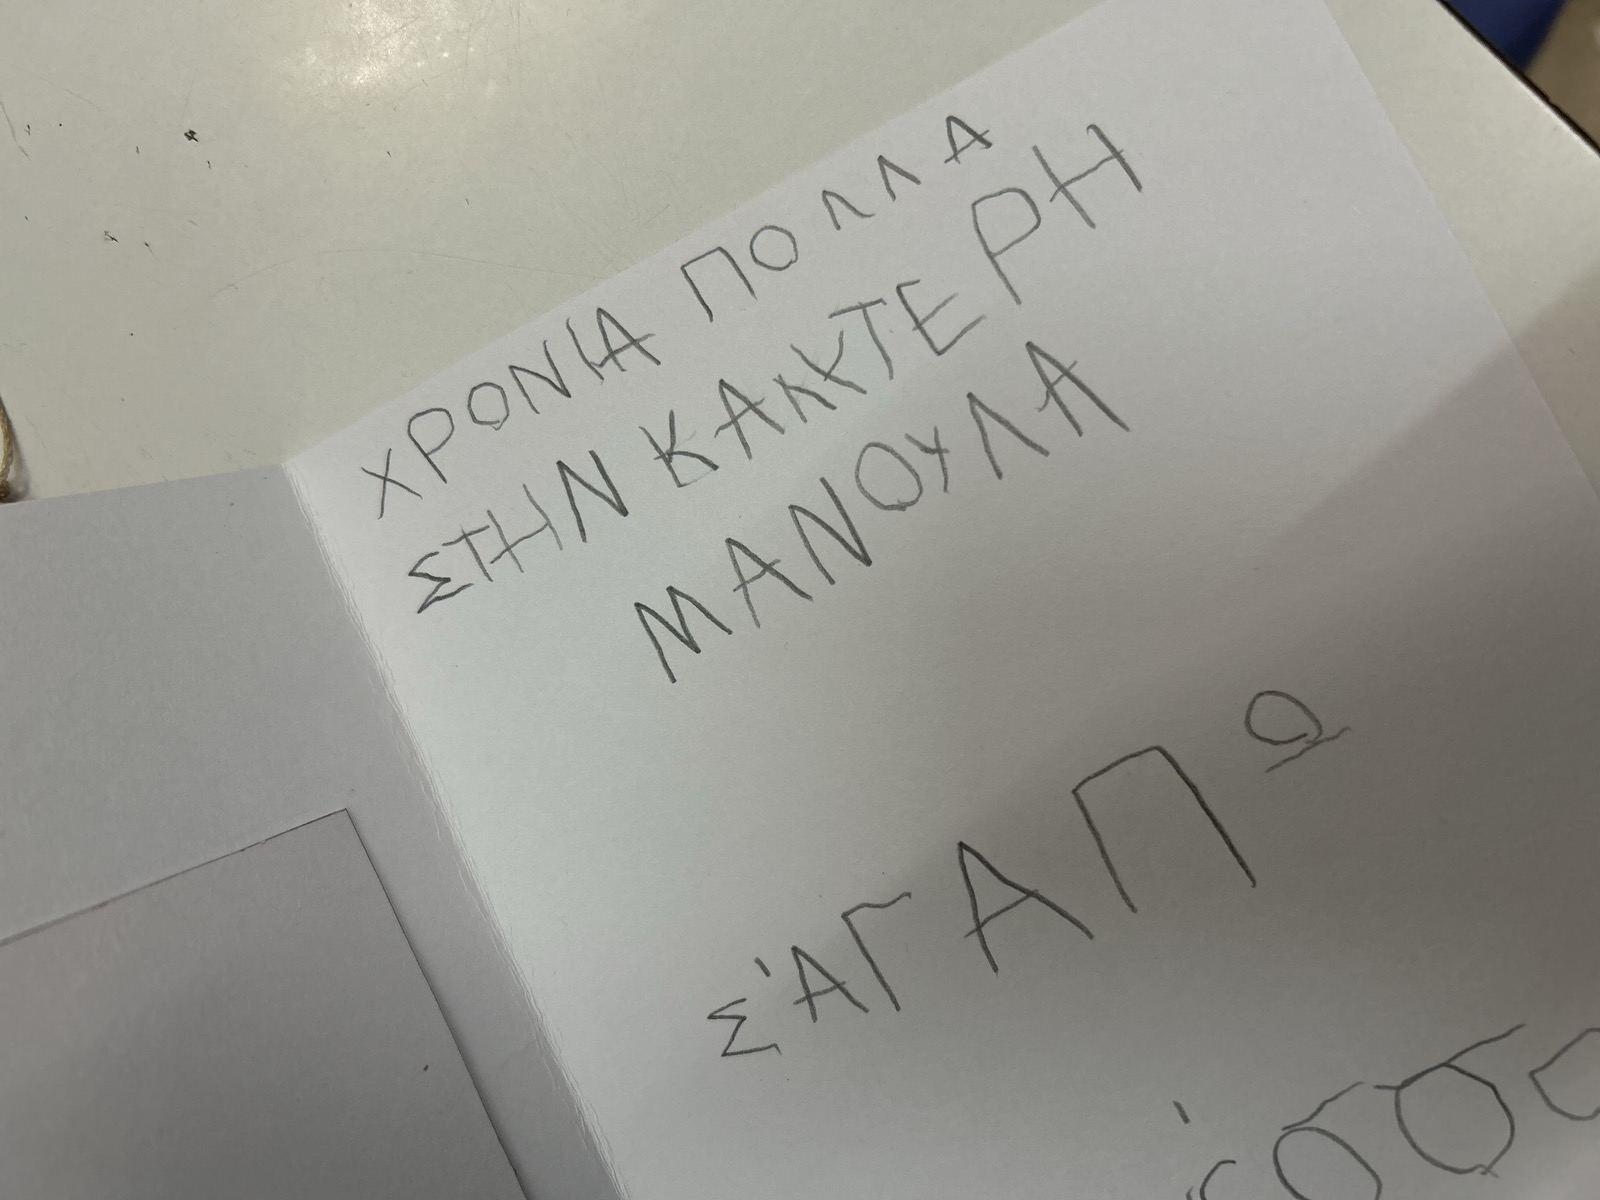 ΧΡΟΝΙΑ ΠΟΛΛΑ
ΣΤΗΝ ΚΑΛΥΤΕΡΗ
ΜΑΝΟΥΛΑ
Σ'ΑΓΑΠΩ